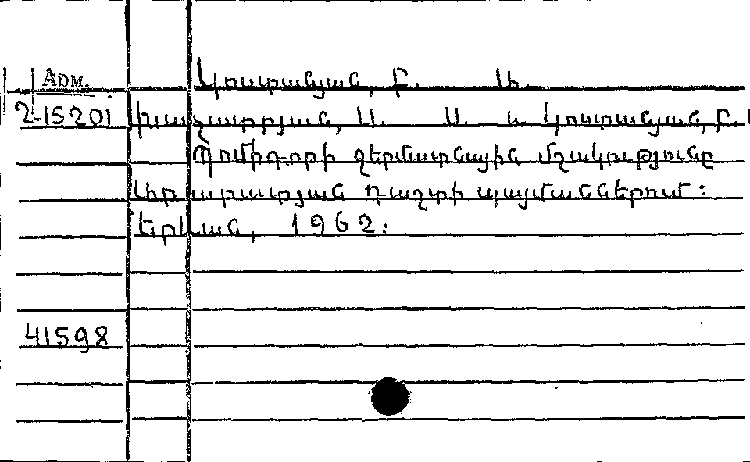 ADM. Կոստանյան, Բ.
2-15201 Խաչատրյան, Ա. Ա. և Կոստանյան, Բ.
Պոմիդորի ջերմատնային մշակությունը
Լեռ դաշտի պայմաններում:
Երևան, 1962:
41598